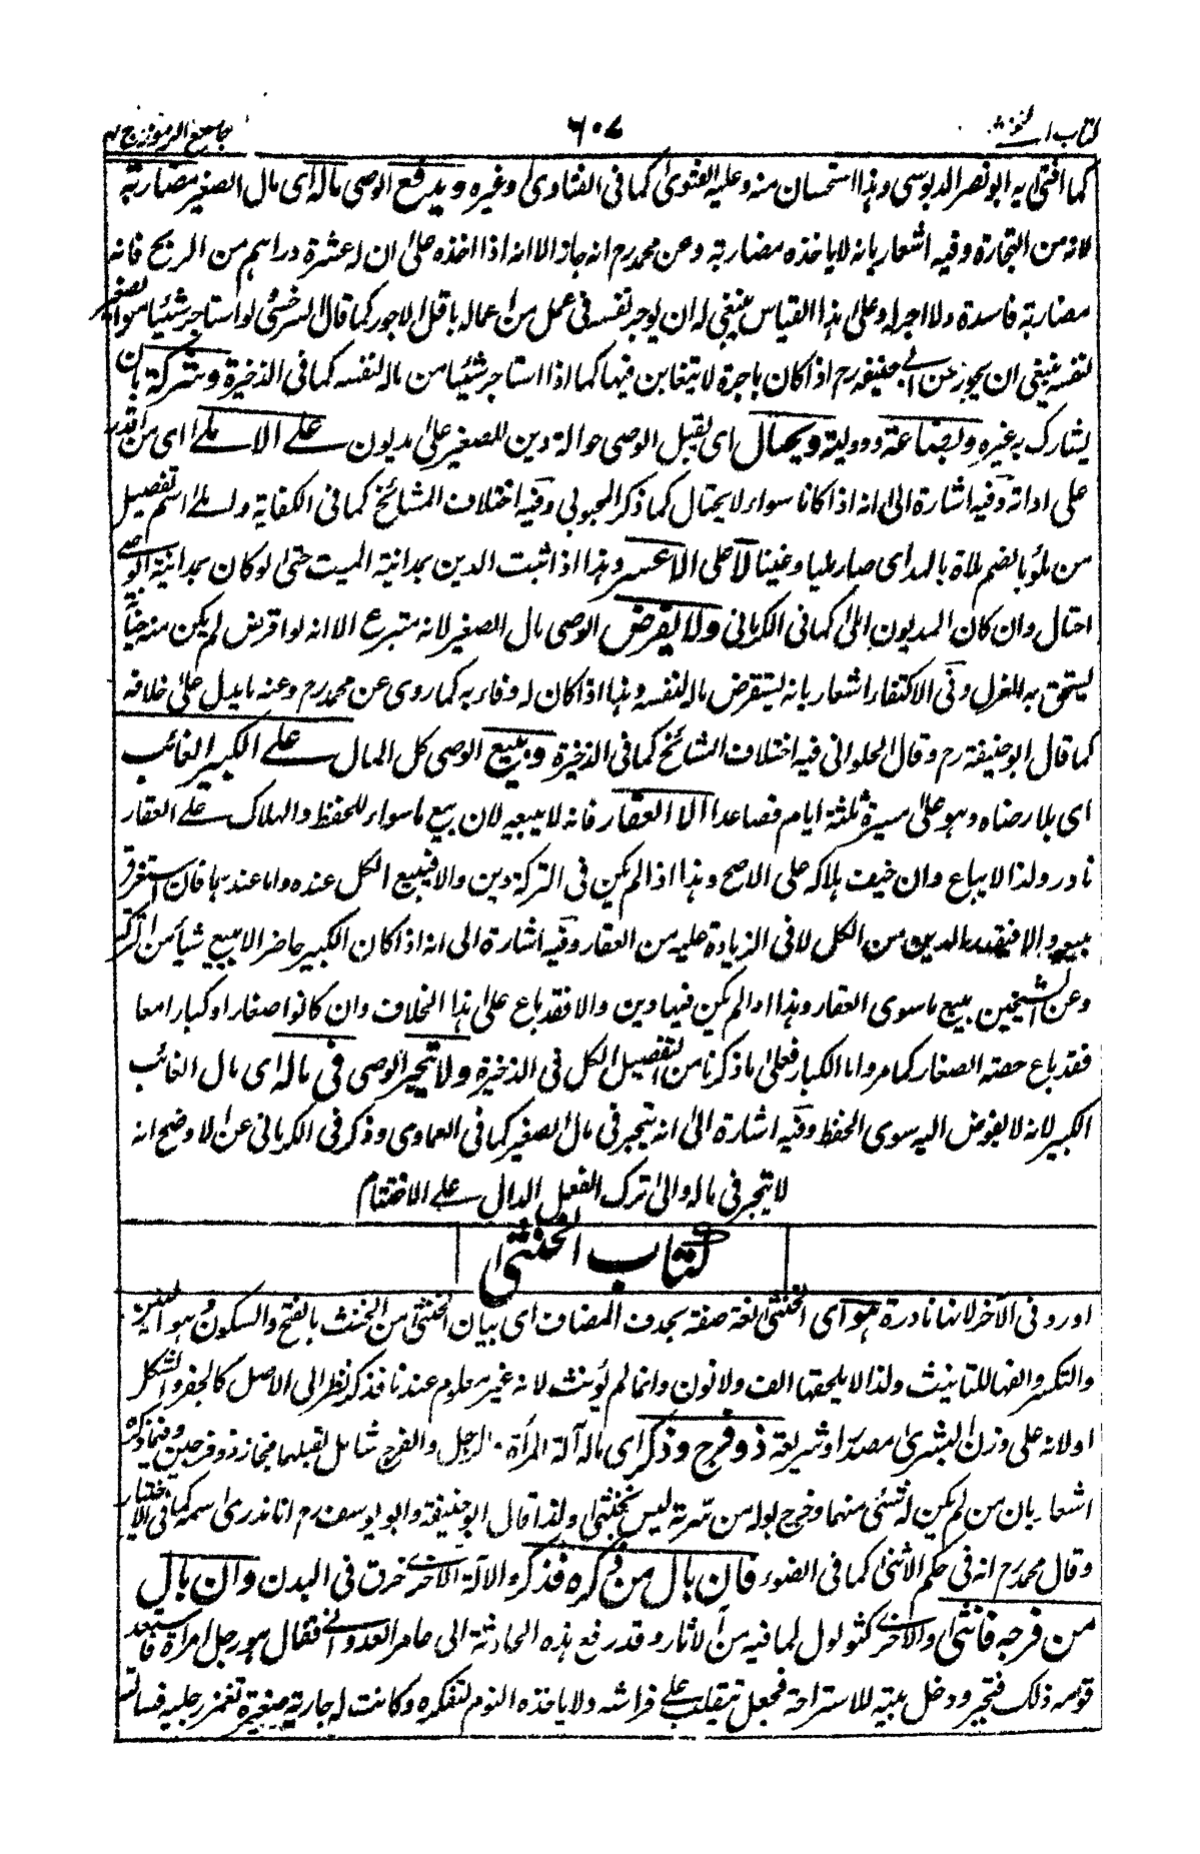 كتاب الخنثى ٦٠٧ جامع الرموز ج ٢
كما افتى به ابو نصر الدبوسى وهذا استحسان منه وعليه الفتوى كما فى الفتاوى وغيره ويدفع الوصى ماله اى مال الصغير مضاربة
لانه من التجارة وفيه اشعار بانه لا ياخذه مضاربة وعن محمد رح انه جاز الا انه اذا اخذه على ان له عشرة دراهم من الربح فانه
مضاربة فاسدة ولا اجر له وعلى هذا القياس ينبغى له ان يوجر نفسه فى عمل من اعماله باقل الاجور كما قال السرخسى لو استاجر شيئا من الصغير
لنفسه ينبغى ان يجوز عن ابى حنيفة رح اذا كان باجرة لا يتغابن فيها كما اذا استاجر شيئا من ماله لنفسه كما فى الذخيرة وشركة بان
يشارك به غيره وبضاعة ووديعة ويحتال اى يقبل الوصى حوالة دين للصغير على مديون على الاملأ اى من اقدر
على ادائه وفيه اشارة الى انه اذا كانا سواء لا يحتال كما ذكر المحبوبى وفيه اختلاف المشائخ كما فى الكفاية والاملأ اسم تفضيل
من ملؤ بالضم ملاءة بالمد اى صار مليا وغنيا لا على الاعسر وهذا اذا ثبت الدين بمداينة الميت حتى لو كان بمداينة الوصى
احتال وان كان المديون املى كما فى الكرمانى ولا يقرض الوصى مال الصغير لانه متبرع الا انه لو اقرض لم يكن منه خيانة
يستحق به العزل وفى الاكتفاء اشعار بانه يستقرض ماله لنفسه وهذا اذا كان له وفاء به كما روى عن محمد رح وعنه ما يدل على خلافه
كما قال ابو حنيفة رح وقال الحلوانى فيه اختلاف المشائخ كما فى الذخيرة ويبيع الوصى كل المال على الكبير الغائب
اى بلا رضاه وهو على مسيرة ثلثة ايام فصاعدا الا العقار فانه لا يبيعه لان بيع ما سواه للحفظ والهلاك على العقار
نادر ولذا لا يباع وان خيف هلاكه على الاصح وهذا اذا لم يكن فى التركة دين والا فيبيع الكل عنده واما عندهما فان استغرق
يبيعه والا فبقدر الدين من الكل لا فى الزيادة عليه من العقار وفيه اشارة الى انه اذا كان الكبير حاضرا لا يبيع شيأ من التركة
وعن الشيخين يبيع ما سوى العقار وهذا اذا لم يكن فيها دين والا فقد باع على هذا الخلاف وان كانوا صغارا وكبارا معا
فقد باع حصة الصغار كما مر واما الكبار فعلى ما ذكرنا من التفصيل الكل فى الذخيرة ولا يتجر الوصى فى ماله اى مال الغائب
الكبير لانه لا يفوض اليه سوى الحفظ وفيه اشارة الى انه يتجر فى مال الصغير كما فى العمادى وذكر فى الكرمانى عن الاوضح انه
لا يتجر فى ماله والى ترك الفعل الدال على الاختتام
كتاب الخنثى
اورد فى الآخر لانها نادرة هو اى الخنثى لغة صفة بحذف المضاف اى بيان الخنثى من الخنث بالفتح والسكون وهو اللين
والتكسر والفها للتانيث ولذا لا يلحقها الف ولا نون وانما لم يؤنث لانه غير معلوم عندنا فذكر نظرا الى الاصل كالجفر والشكل
او لانه على وزن البشرى مصدرا وشريعة ذو فرج وذكر اى ماله آلة المرأة والرجل والفرج شامل لقبلهما فمجازه ذو فرجين وفيما ذكر
اشعار بان من لم يكن له شئ منهما وخرج بوله من سرته ليس بخنثى ولذا قال ابو حنيفة وابو يوسف رح انا لا ندرى اسمه كما فى الاختيار
وقال محمد رح انه فى حكم الانثى كما فى الضوء فان بال من ذكره فذكر والآلة الاخرى خرق فى البدن وان بال
من فرجه فانثى والاخرى كثؤلول لما فيه من الآثار وقد رفع هذه الحادثة الى عامر العدوانى فقال هو رجل امرأة فاستبعد
قومه ذلك فتحير ودخل بيته للاستراحة فجعل يتقلب على فراشه ولا ياخذه النوم لتفكره وكانت له جارية صغيرة تغمز رجليه فسالته